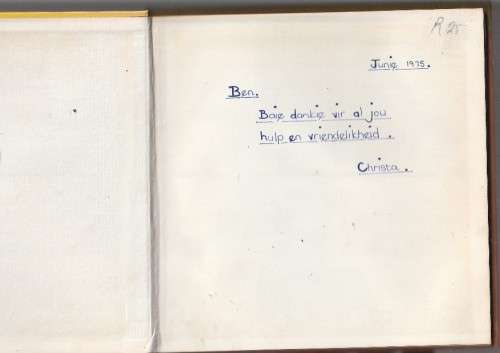 R 25
Junie 1975.
Ben.
Baie dankie vir al jou
hulp en vriendelikheid.
Christa.